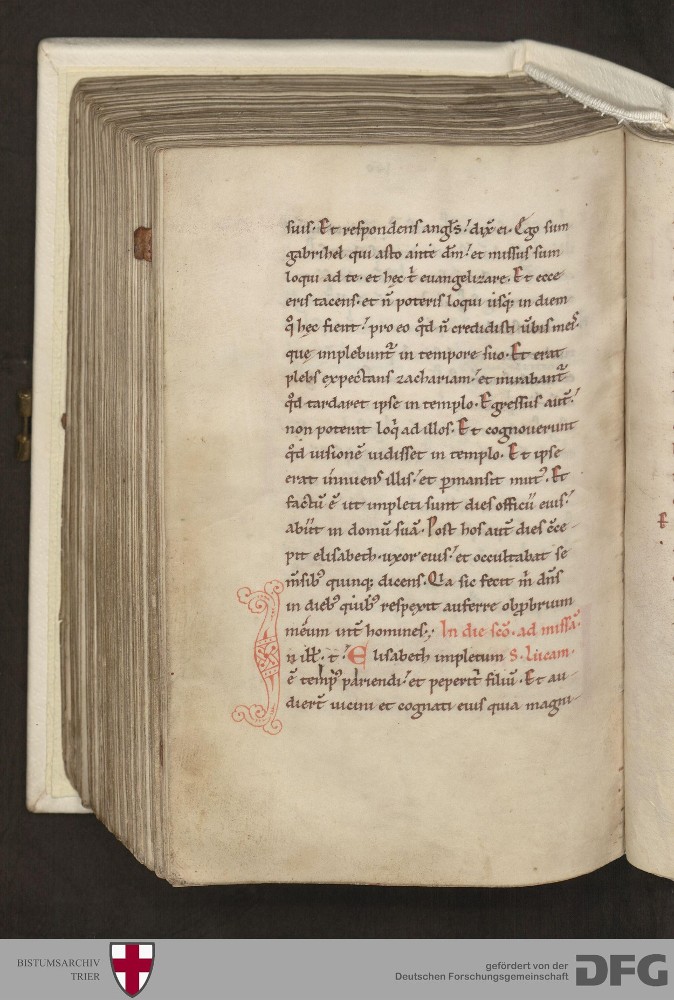 suis. Et respondens angl̄s. dix̄ ei. Ego sum
gabrihel qui asto ante dm̄. et missus sum
loqui ad te. et hęc t̄ euangelizare. Et ecce
eris tacens. et n̄ poteris loqui usq; in diem
q̊ hęc fient. pro eo qd̄ n̄ credidisti ūbis meis.
quę implebunt̄ in tempore suo. Et erat
plebs expectans zachariam. et mirabant̄
qd̄ tardaret ipse in templo. Egressus aut̄.
non poterat loqi ad illos. Et cognouerunt
qd̄ uisionē uidisset in templo. Et ipse
erat innuens illis. et p̄mansit mut᷒. Et
factū ē ut impleti sunt dies officii eius.
abiit in domū suā. Post hos aut̄ dies c̄ce
pit elisabeth. uxor eius. et occultabat se
m̄sib᷒ quinq; dicens. Q̄a sic fecit m̄ dn̄s
in dieb᷒ quib᷒ respexit auferre obp̄brium
meum int̄ homines. In die sc̄o. ad missā.
n ill̄. t̄. Elisabeth impletum S. Lucam.
ē temp᷒ pariendi. et peperit filiū. Et au
diert̄ uicini et cognati eius quia magni
BISTUMSARCHIV
TRIER
gefördert von der
Deutschen Forschungsgemeinschaft
DFG